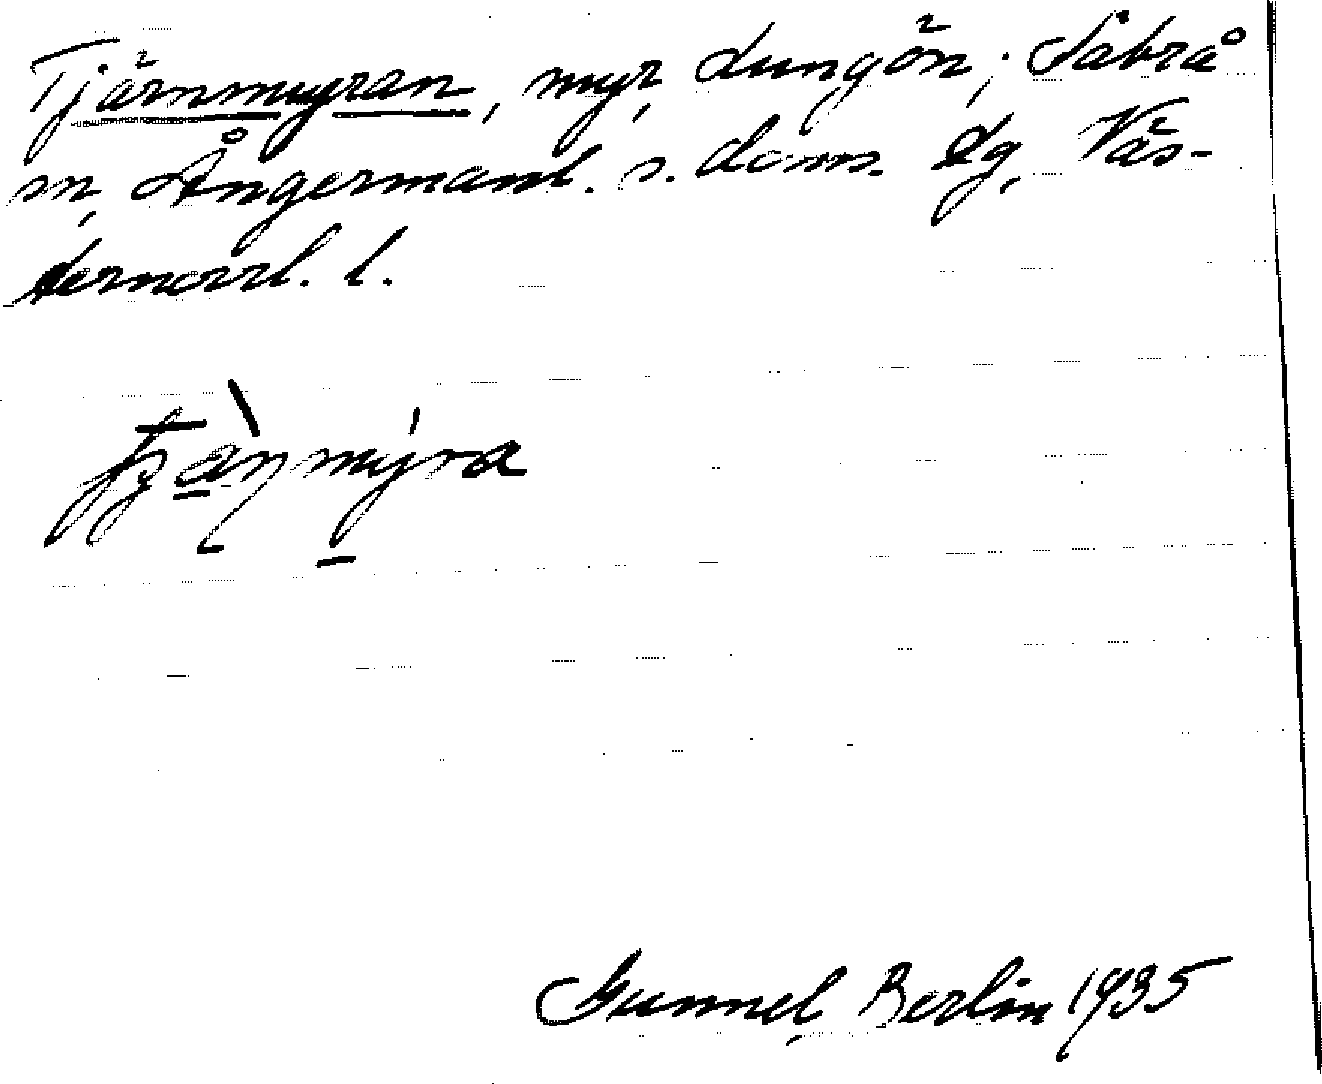 Tjärnmyran, myr, Lungön, Säbrå
sn, Ångermanl. s. doms. dg, Väs-
ternorrl. l.
mýra
Gunnel Berlin 1935